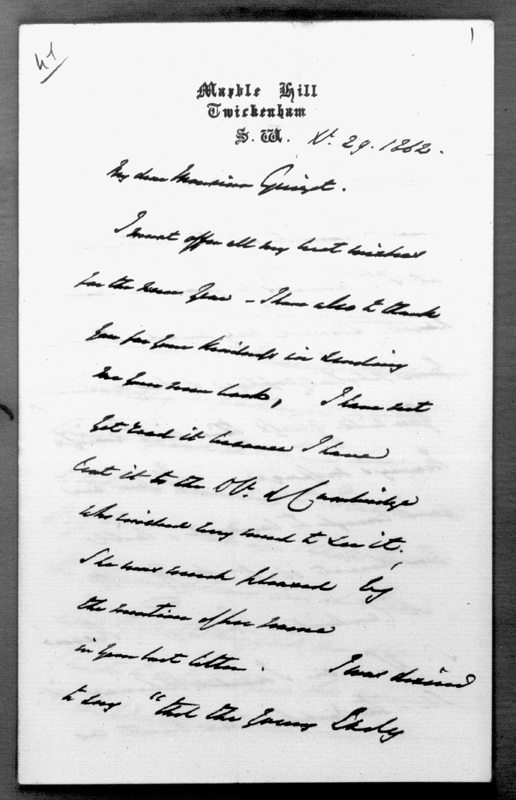 41
1
Marble Hill
Twickenham
S. W. Xr. 29. 1862.
My dear Monsieur Guizot.
I must offer all my best wishes
for the new Year - I have also to thank
you for your kindness in sending
me your new book, I have not
yet read it because I have
lent it to the Dss. of Cambridge
who wished very much to see it;
She was much pleased by
the mention of her name
in your last letter. I was desired
to say "that the young Lady